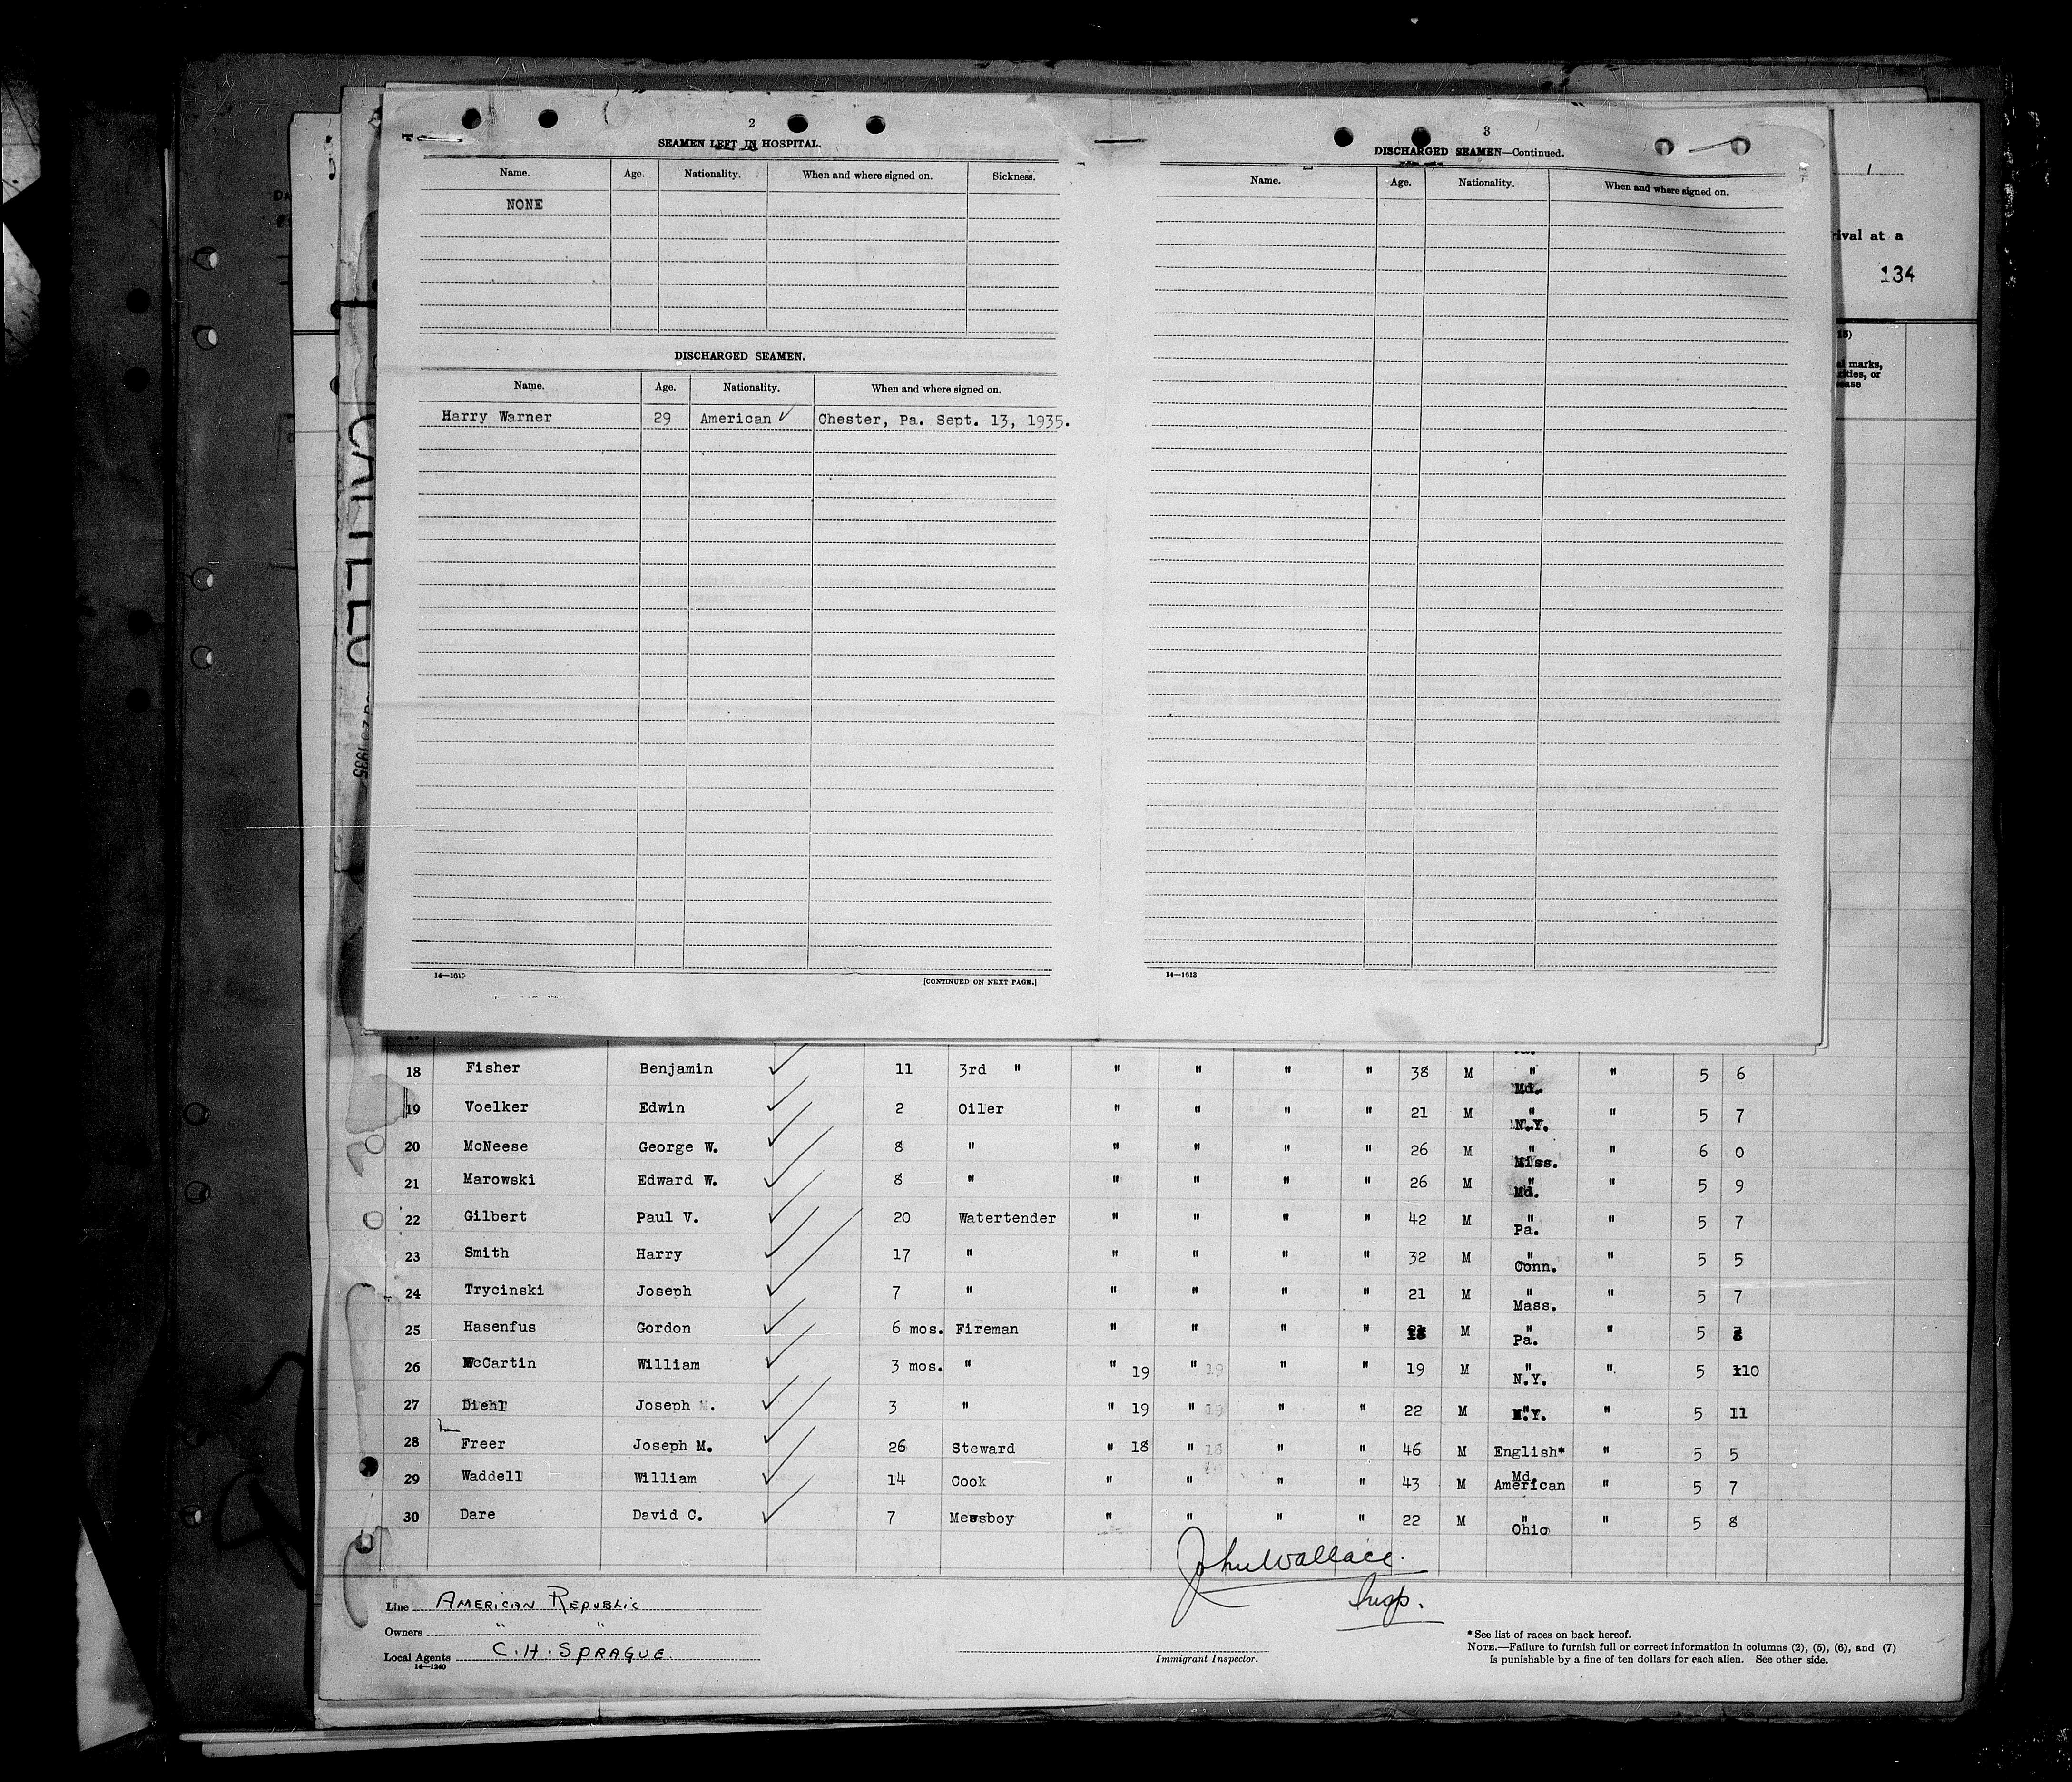 2
SEAMEN LEFT IN HOSPITAL.
Name. Age. Nationality. When and where signed on. Sickness.
NONE
DISCHARGED SEAMEN.
Name. Age. Nationality. When and where signed on.
Harry Warner 29 American ✓ Chester, Pa. Sept. 13, 1935.
14—1613
[CONTINUED ON NEXT PAGE.]
3
DISCHARGED SEAMEN—Continued.
Name. Age. Nationality. When and where signed on.
14—1613
1
rival at a
134
15)
al marks,
rities, or
ease
1935
18 Fisher Benjamin ✓ 11 3rd " " " " " 38 M " Md. " 5 6
19 Voelker Edwin ✓ 2 Oiler " " " " 21 M " N.Y. " 5 7
20 McNeese George W. ✓ 8 " " " " " 26 M " Miss. " 6 0
21 Marowski Edward W. ✓ 8 " " " " " 26 M " Md. " 5 9
22 Gilbert Paul V. ✓ 20 Watertender " " " " 42 M " Pa. " 5 7
23 Smith Harry ✓ 17 " " " " " 32 M " Conn. " 5 5
24 Trycinski Joseph ✓ 7 " " " " " 21 M " Mass. " 5 7
25 Hasenfus Gordon ✓ 6 mos. Fireman " " " " M " Pa. " 5
26 McCartin William ✓ 3 mos. " " 19 " 19 " " 19 M " N.Y. " 5 10
27 Diehl Joseph M. ✓ 3 " " 19 " 19 " " 22 M " N.Y. " 5 11
28 Freer Joseph M. ✓ 26 Steward " 18 " 18 " " 46 M English* " 5 5
29 Waddell William ✓ 14 Cook " " " " 43 M Md. American " 5 7
30 Dare David C. ✓ 7 Messboy " " " " 22 M " Ohio " 5 8
John Wallace.
Insp.
Line AMERICAN REPUBLIC
Owners " "
Local Agents C. H. SPRAGUE.
14—1240
Immigrant Inspector.
* See list of races on back hereof.
NOTE.—Failure to furnish full or correct information in columns (2), (5), (6), and (7)
is punishable by a fine of ten dollars for each alien. See other side.